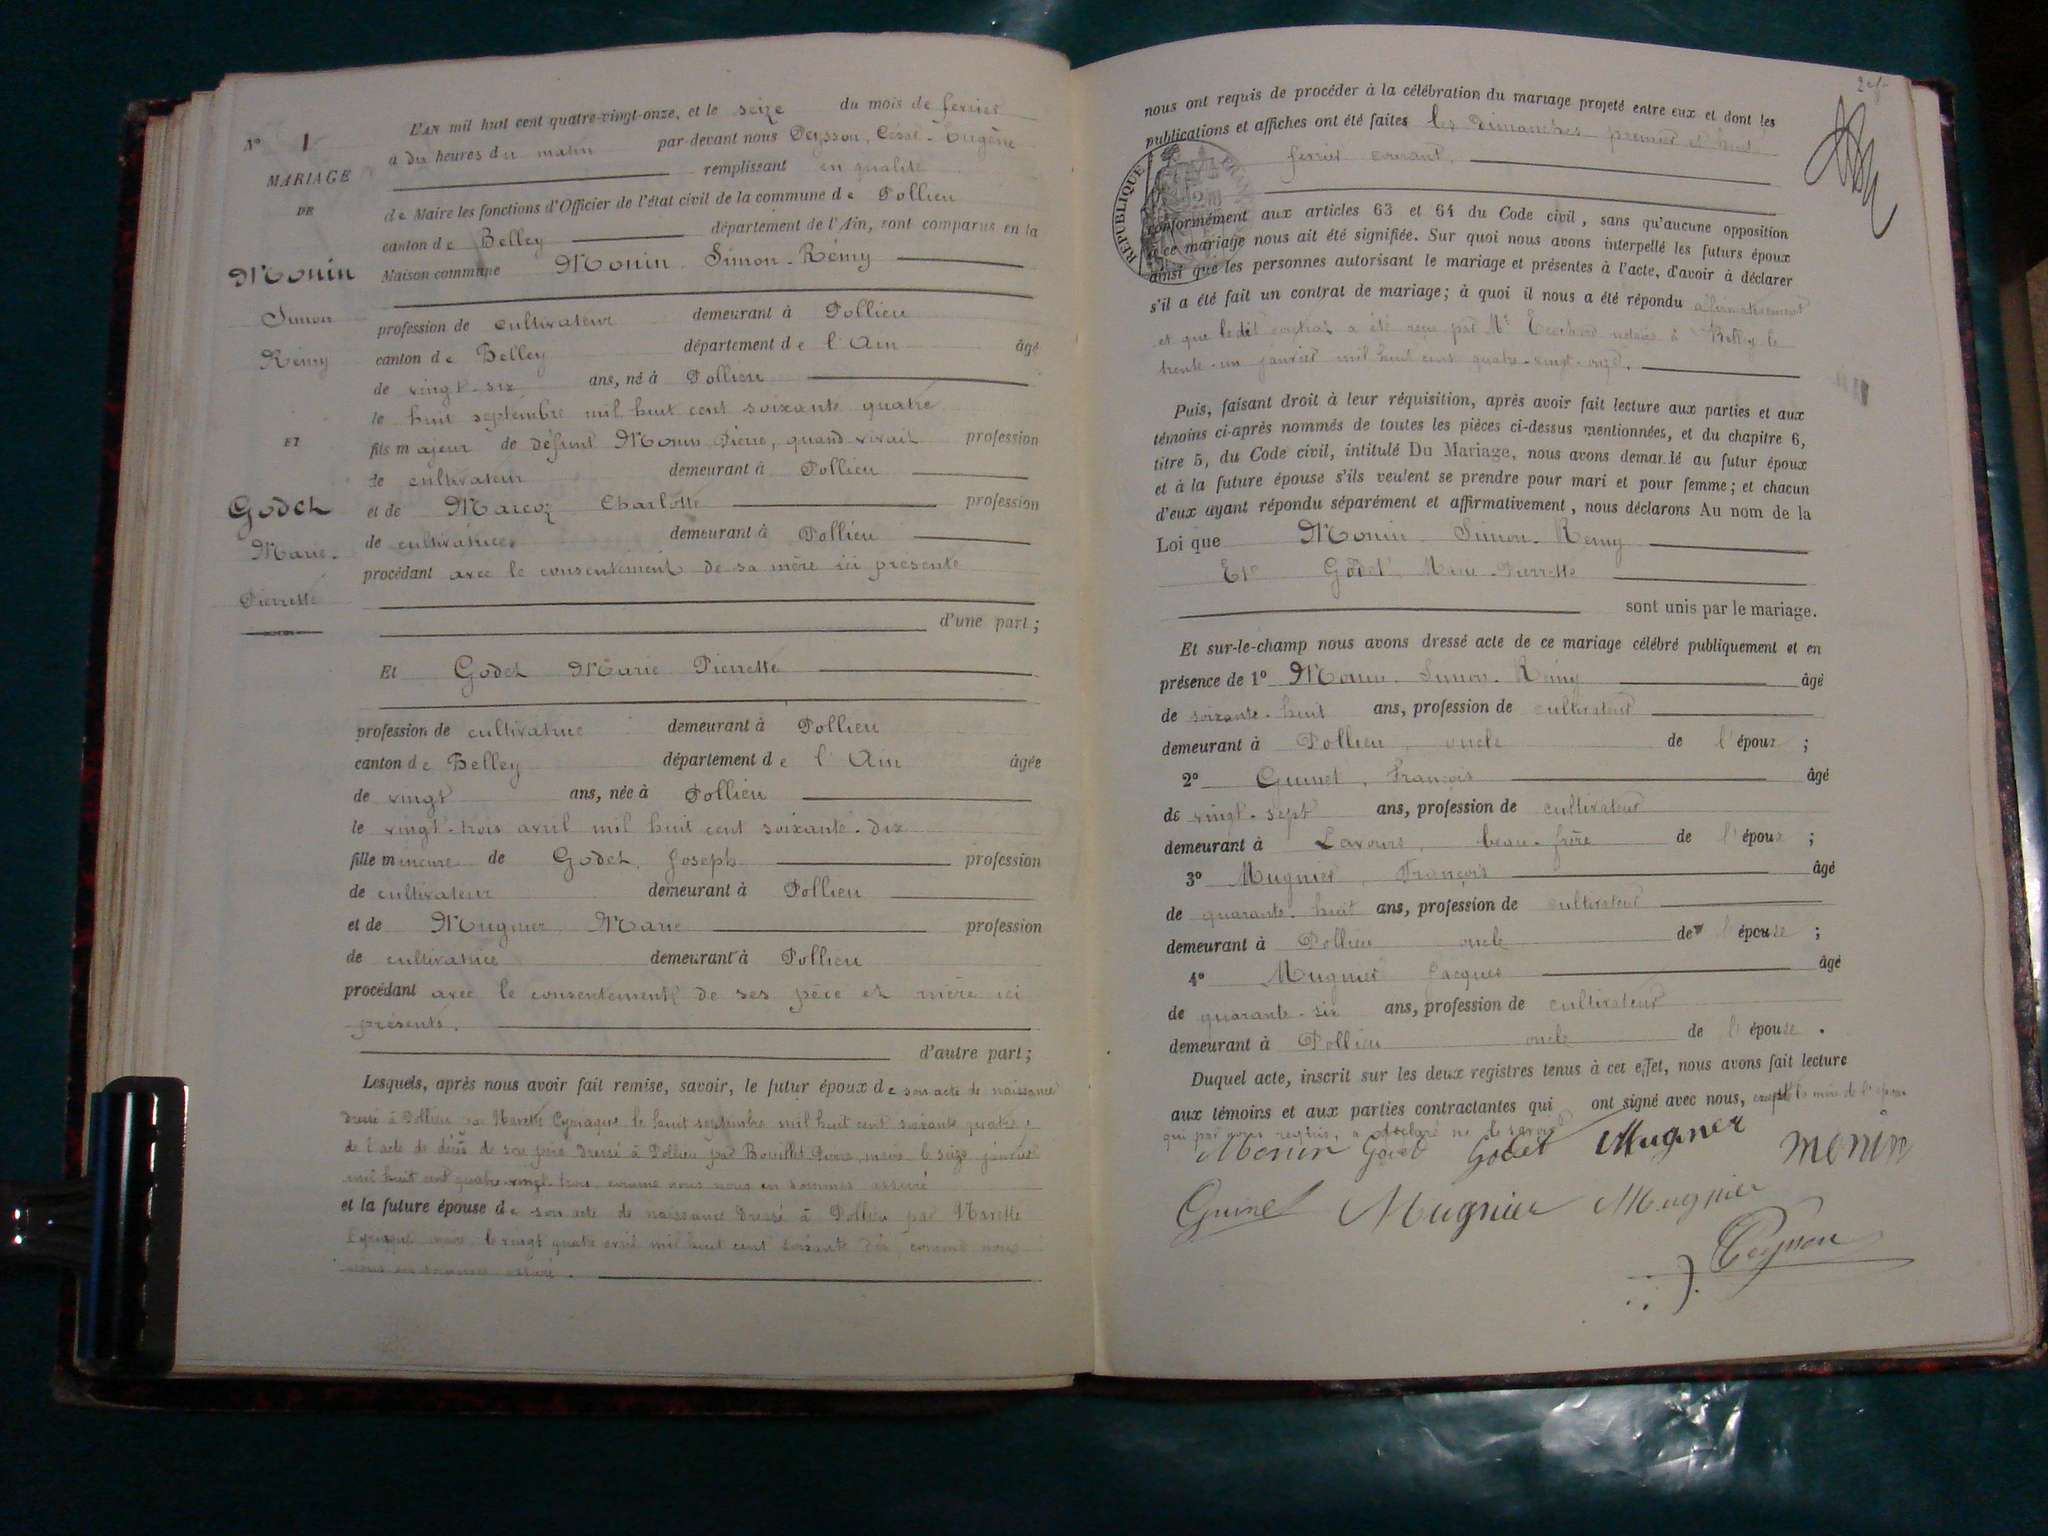 N° 1
MARIAGE
DE
Monin
Simon
Rémy
ET
Godet
Marie-
Pierrette
L'AN mil huit cent quatre-vingt-onze, et le seize du mois de fevrier
à dix heures du matin par-devant nous Peysson, César-Eugène
remplissant en qualité
de Maire les fonctions d'Officier de l'état civil de la commune de Pollieu
canton de Belley département de l'Ain, sont comparus en la
Maison commune Monin Simon-Rémy
profession de cultivateur demeurant à Pollieu
canton de Belley département de l'Ain âgé
de vingt-six ans, né à Pollieu
le huit septembre mil huit cent soixante quatre
fils majeur de défunt Monin Pierre, quand vivait profession
de cultivateur demeurant à Pollieu
et de Marcoz Charlotte profession
de cultivatrice demeurant à Pollieu
procédant avec le consentement de sa mère ici présente
d'une part;
Et Godet Marie Pierrette
profession de cultivatrice demeurant à Pollieu
canton de Belley département de l'Ain âgée
de vingt ans, née à Pollieu
le vingt-trois avril mil huit cent soixante-dix
fille mineure de Godet Joseph profession
de cultivateur demeurant à Pollieu
et de Mugnier Marie profession
de cultivatrice demeurant à Pollieu
procédant avec le consentement de ses père et mère ici
présents.
d'autre part;
Lesquels, après nous avoir fait remise, savoir, le futur époux de son acte de naissance
dressé à Pollieu par Navette Cyriaque le huit septembre mil huit cent soixante quatre,
de l'acte de décès de son père dressé à Pollieu par Bouillet Pierre, maire le seize janvier
mil huit cent quatre-vingt-trois comme nous nous en sommes assuré
et la future épouse de son acte de naissance dressé à Pollieu par Navette
Cyriaque maire le vingt quatre avril mil huit cent soixante dix, comme nous
nous en sommes assuré.
nous ont requis de procéder à la célébration du mariage projeté entre eux et dont les
publications et affiches ont été faites les dimanches premier et huit
fevrier courant.
RÉPUBLIQUE
conformément aux articles 63 et 64 du Code civil, sans qu'aucune opposition
à ce mariage nous ait été signifiée. Sur quoi nous avons interpellé les futurs époux
ainsi que les personnes autorisant le mariage et présentes à l'acte, d'avoir à déclarer
s'il a été fait un contrat de mariage; à quoi il nous a été répondu affirmativement
et que ledit contrat a été reçu par Me notaire à Belley le
trente-un janvier mil huit cent quatre-vingt-onze.
Puis, faisant droit à leur réquisition, après avoir fait lecture aux parties et aux
témoins ci-après nommés de toutes les pièces ci-dessus mentionnées, et du chapitre 6,
titre 5, du Code civil, intitulé Du Mariage, nous avons demandé au futur époux
et à la future épouse s'ils veulent se prendre pour mari et pour femme; et chacun
d'eux ayant répondu séparément et affirmativement, nous déclarons Au nom de la
Loi que Monin Simon-Remy
Et Godet Marie-Pierrette
sont unis par le mariage.
Et sur-le-champ nous avons dressé acte de ce mariage célébré publiquement et en
présence de 1° Monin Simon-Rémy âgé
de soixante-huit ans, profession de cultivateur
demeurant à Pollieu, oncle de l'époux;
2° Guinet, François âgé
de vingt-sept ans, profession de cultivateur
demeurant à Lavours, beau-frère de l'époux;
3° Mugnier, François âgé
de quarante-huit ans, profession de cultivateur
demeurant à Pollieu oncle de l'épouse;
4° Mugnier Jacques âgé
de quarante-six ans, profession de cultivateur
demeurant à Pollieu oncle de l'épouse.
Duquel acte, inscrit sur les deux registres tenus à cet effet, nous avons fait lecture
aux témoins et aux parties contractantes qui ont signé avec nous, excepté la mère de l'époux
qui par nous requis, a déclaré ne le savoir
Monin Godet Godet Mugnier monin
Guinet Mugnier Mugnier
Peysson